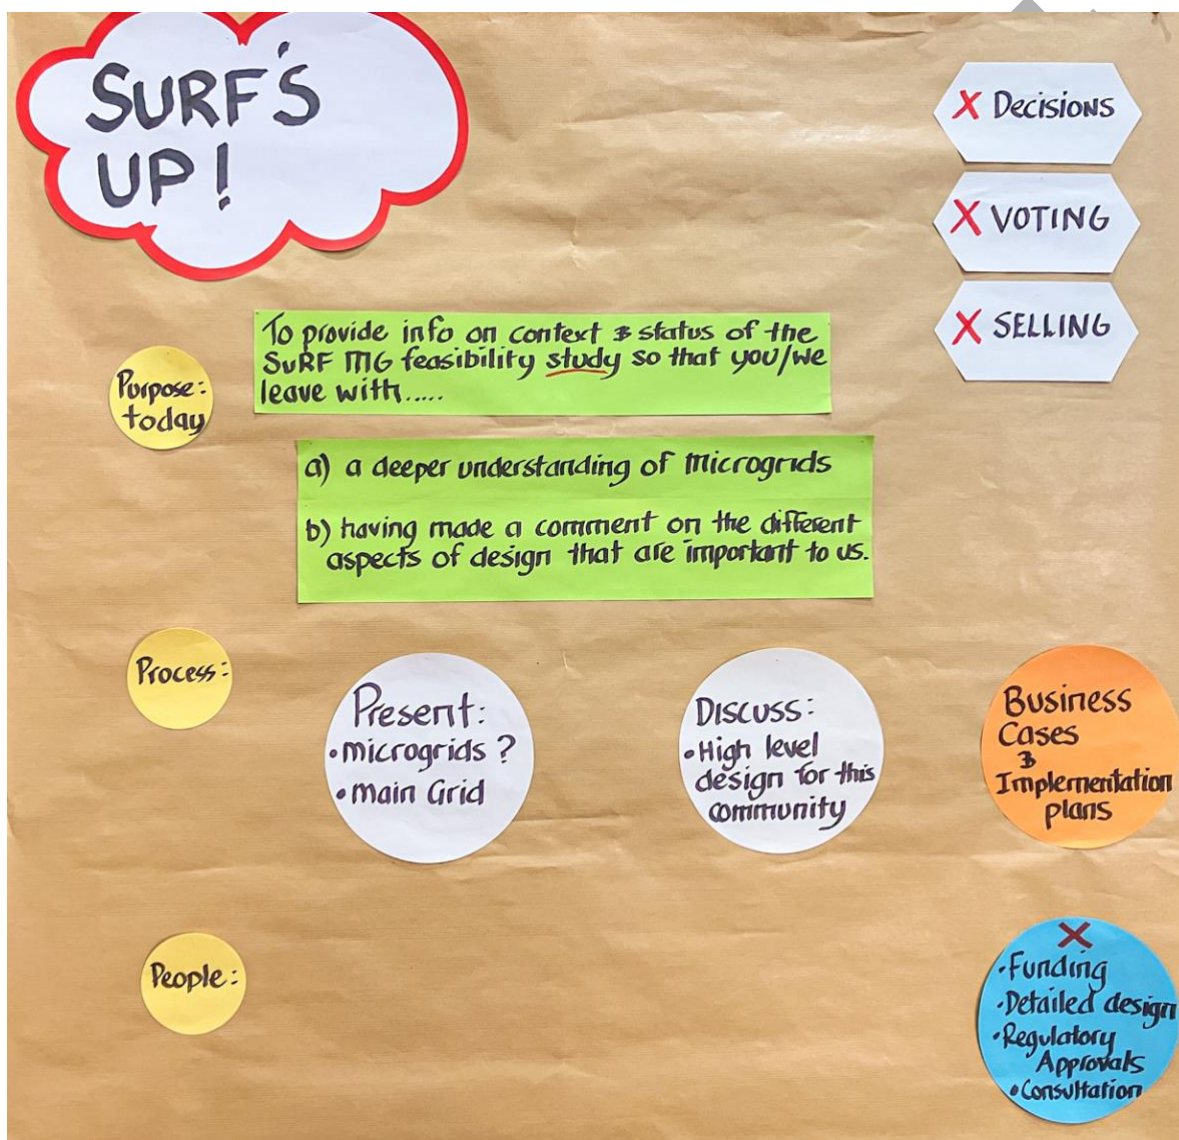 SURF'S
UP!
X Decisions
X VOTING
X SELLING
Purpose:
today
To provide info on context & status of the
SuRF MG feasibility study so that you/we
leave with.....
a) a deeper understanding of Microgrids
b) having made a comment on the different
aspects of design that are important to us.
Process:
Present:
• microgrids ?
• main Grid
DISCUSS:
• High level
design for this
community
Business
Cases
&
Implementation
plans
People:
X
• Funding
• Detailed design
• Regulatory
Approvals
• Consultation